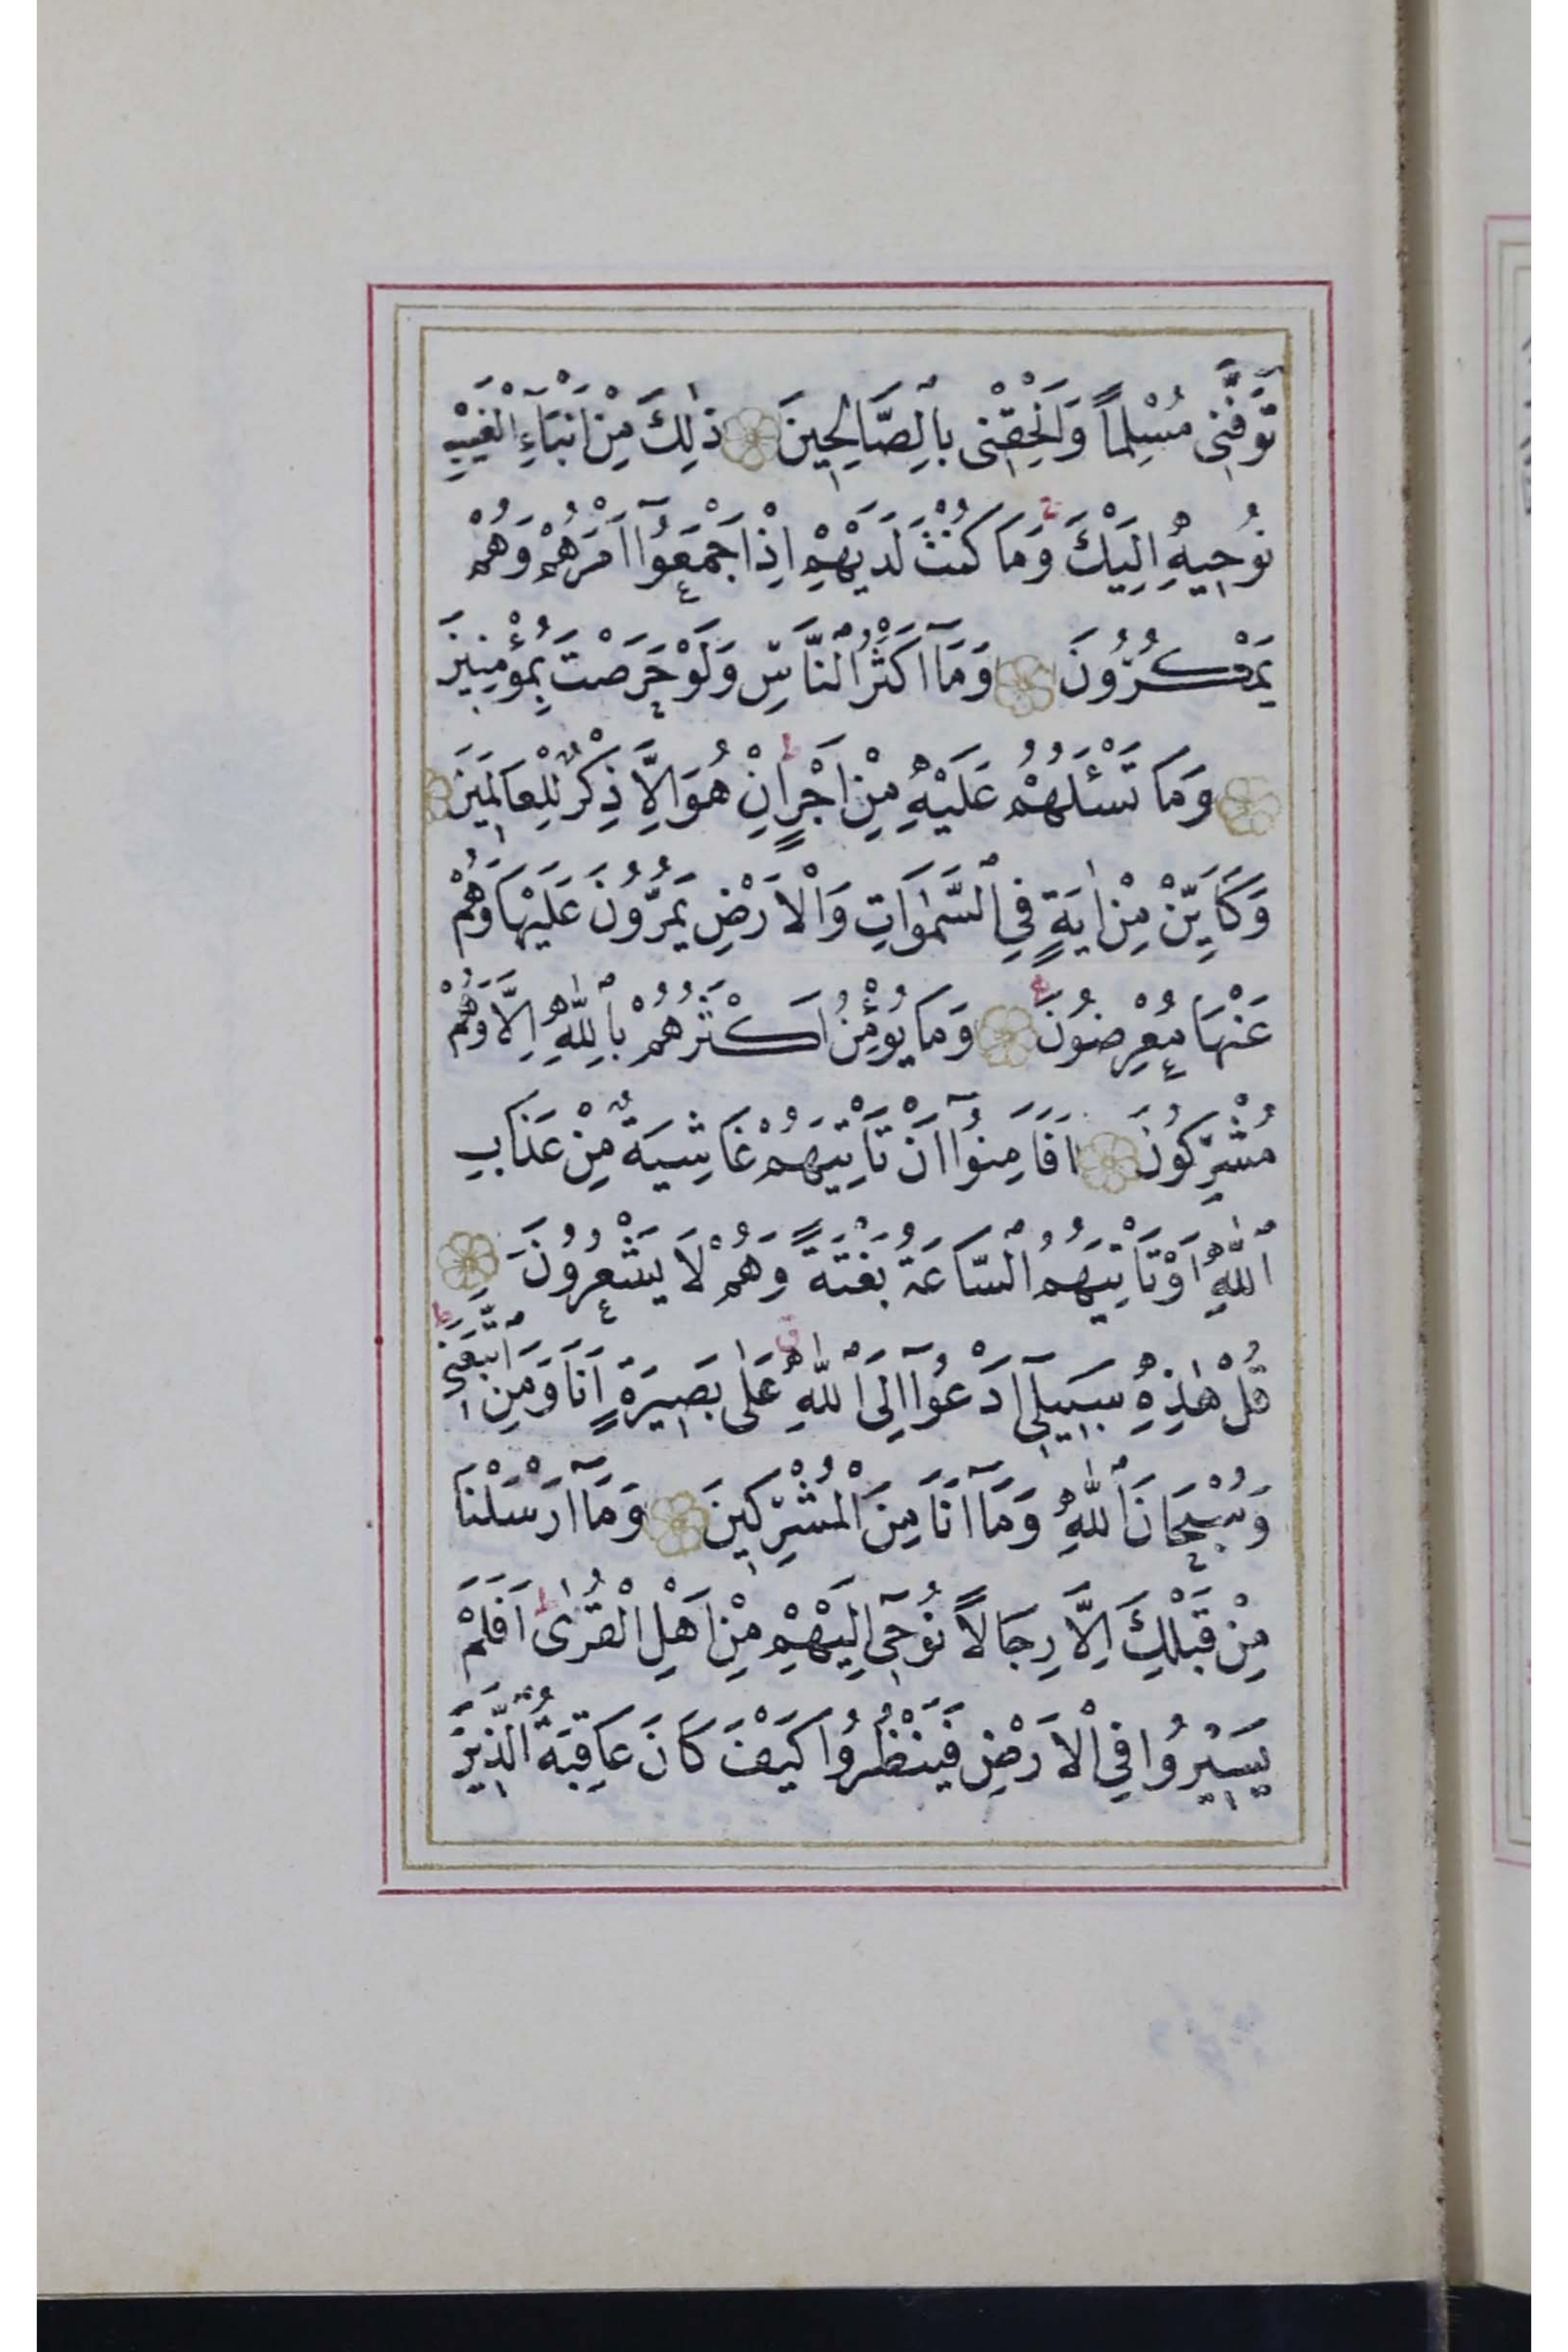 تَوَفَّنِى مُسْلِماً وَاَلْحِقْنِى بِالصَّالِحِينَ ذٰلِكَ مِنْ اَنْبَآءِ الْغَيْبِ
نُوحِيهِ اِلَيْكَ وَمَا كُنْتَ لَدَيْهِمْ اِذْ اَجْمَعُوٓا اَمْرَهُمْ وَهُمْ
يَمْكُرُونَ وَمَٓا اَكْثَرُ النَّاسِ وَلَوْ حَرَصْتَ بِمُؤْمِنِينَ
وَمَا تَسْـَٔلُهُمْ عَلَيْهِ مِنْ اَجْرٍ اِنْ هُوَ اِلَّا ذِكْرٌ لِلْعَالَمِينَ
وَكَاَيِّنْ مِنْ اٰيَةٍ فِي السَّمٰوَاتِ وَالْاَرْضِ يَمُرُّونَ عَلَيْهَا وَهُمْ
عَنْهَا مُعْرِضُونَ وَمَا يُؤْمِنُ اَكْثَرُهُمْ بِاللّٰهِ اِلَّا وَهُمْ
مُشْرِكُونَ اَفَاَمِنُوٓا اَنْ تَأْتِيَهُمْ غَاشِيَةٌ مِنْ عَذَابِ
اللّٰهِ اَوْ تَأْتِيَهُمُ السَّاعَةُ بَغْتَةً وَهُمْ لَا يَشْعُرُونَ
قُلْ هٰذِهِ سَبِيلِٓى اَدْعُوٓا اِلَى اللّٰهِ عَلٰى بَصِيرَةٍ اَنَا وَمَنِ اتَّبَعَنِى
وَسُبْحَانَ اللّٰهِ وَمَٓا اَنَا مِنَ الْمُشْرِكِينَ وَمَٓا اَرْسَلْنَا
مِنْ قَبْلِكَ اِلَّا رِجَالاً نُوحِٓى اِلَيْهِمْ مِنْ اَهْلِ الْقُرٰى اَفَلَمْ
يَسِيرُوا فِي الْاَرْضِ فَيَنْظُرُوا كَيْفَ كَانَ عَاقِبَةُ الَّذِينَ